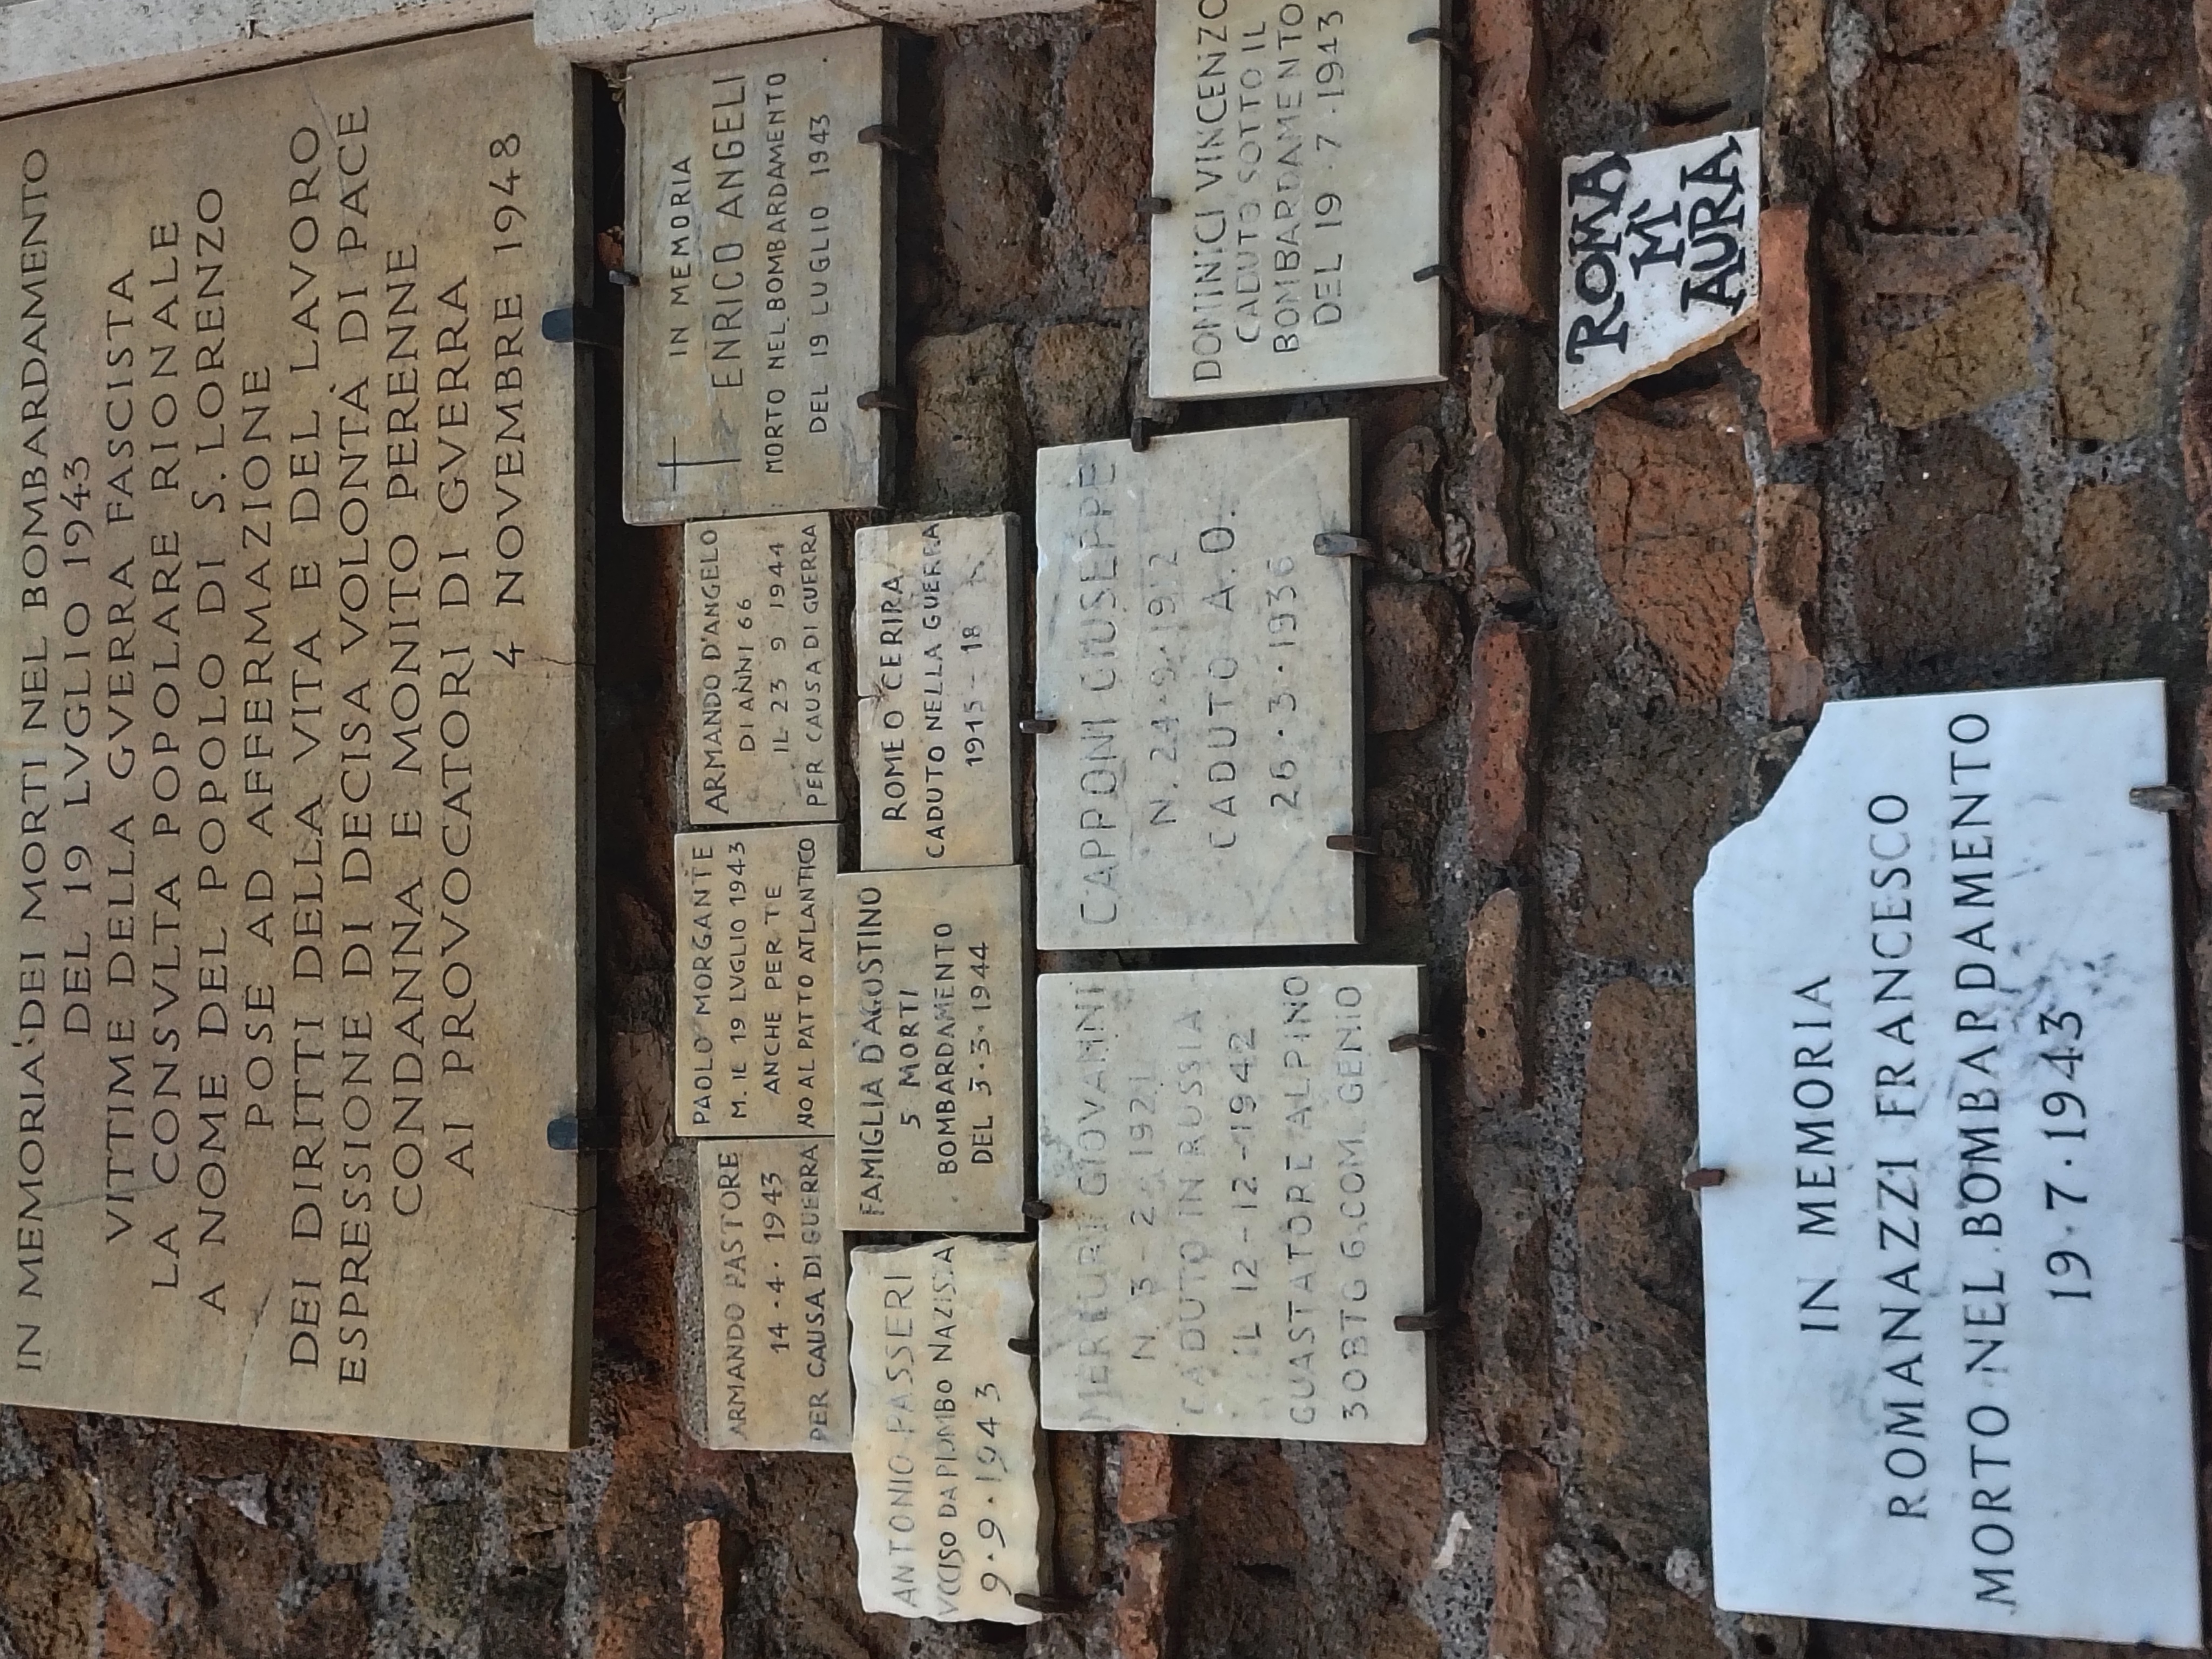 IN MEMORIA DEI MORTI NEL BOMBARDAMENTO
DEL 19 LVGLIO 1943
VITTIME DELLA GVERRA FASCISTA
LA CONSVLTA POPOLARE RIONALE
A NOME DEL POPOLO DI S. LORENZO
POSE AD AFFERMAZIONE
DEI DIRITTI DELLA VITA E DEL LAVORO
ESPRESSIONE DI DECISA VOLONTÀ DI PACE
CONDANNA E MONITO PERENNE
AI PROVOCATORI DI GVERRA
4 NOVEMBRE 1948
ARMANDO PASTORE
14·4·1943
PER CAUSA DI GUERRA
PAOLO MORGANTE
M. IL 19 LVGLIO 1943
ANCHE PER TE
NO AL PATTO ATLANTICO
ARMANDO D'ANGELO
DI ANNI 66
IL 23 9 1944
PER CAUSA DI GUERRA
IN MEMORIA
ENRICO ANGELI
MORTO NEL BOMBARDAMENTO
DEL 19 LUGLIO 1943
ANTONIO PASSERI
VCCISO DA PIOMBO NAZISTA
9·9·1943
FAMIGLIA D'AGOSTINO
5 MORTI
BOMBARDAMENTO
DEL 3·3·1944
ROMEO CERIRA
CADUTO NELLA GUERRA
1915-18
MERCURI GIOVANNI
N. 3-2-1921
CADUTO IN RUSSIA
IL 12-12-1942
GUASTATORE ALPINO
30BTG 6.COM.GENIO
CAPPONI GIUSEPPE
N. 24·9·1912
CADUTO A.O.
26·3·1936
DOMINICI VINCENZO
CADUTO SOTTO IL
BOMBARDAMENTO
DEL 19·7·1943
ROMA
M'
AURA
IN MEMORIA
ROMANAZZI FRANCESCO
MORTO NEL BOMBARDAMENTO
19·7·1943